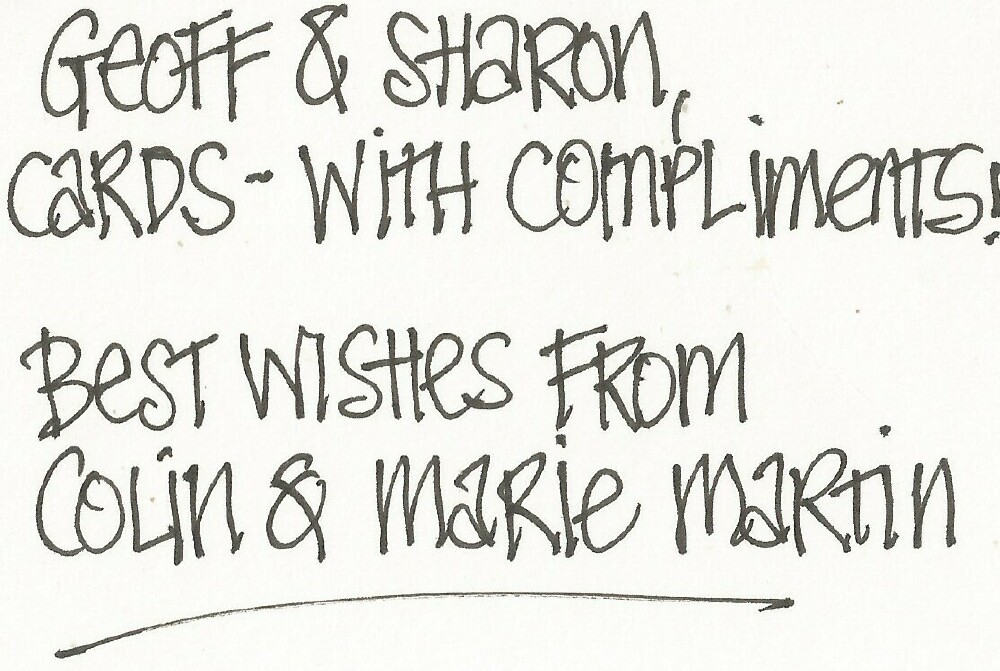 Geoff & Sharon,
Cards - with compliments!
Best wishes from
Colin & Marie Martin